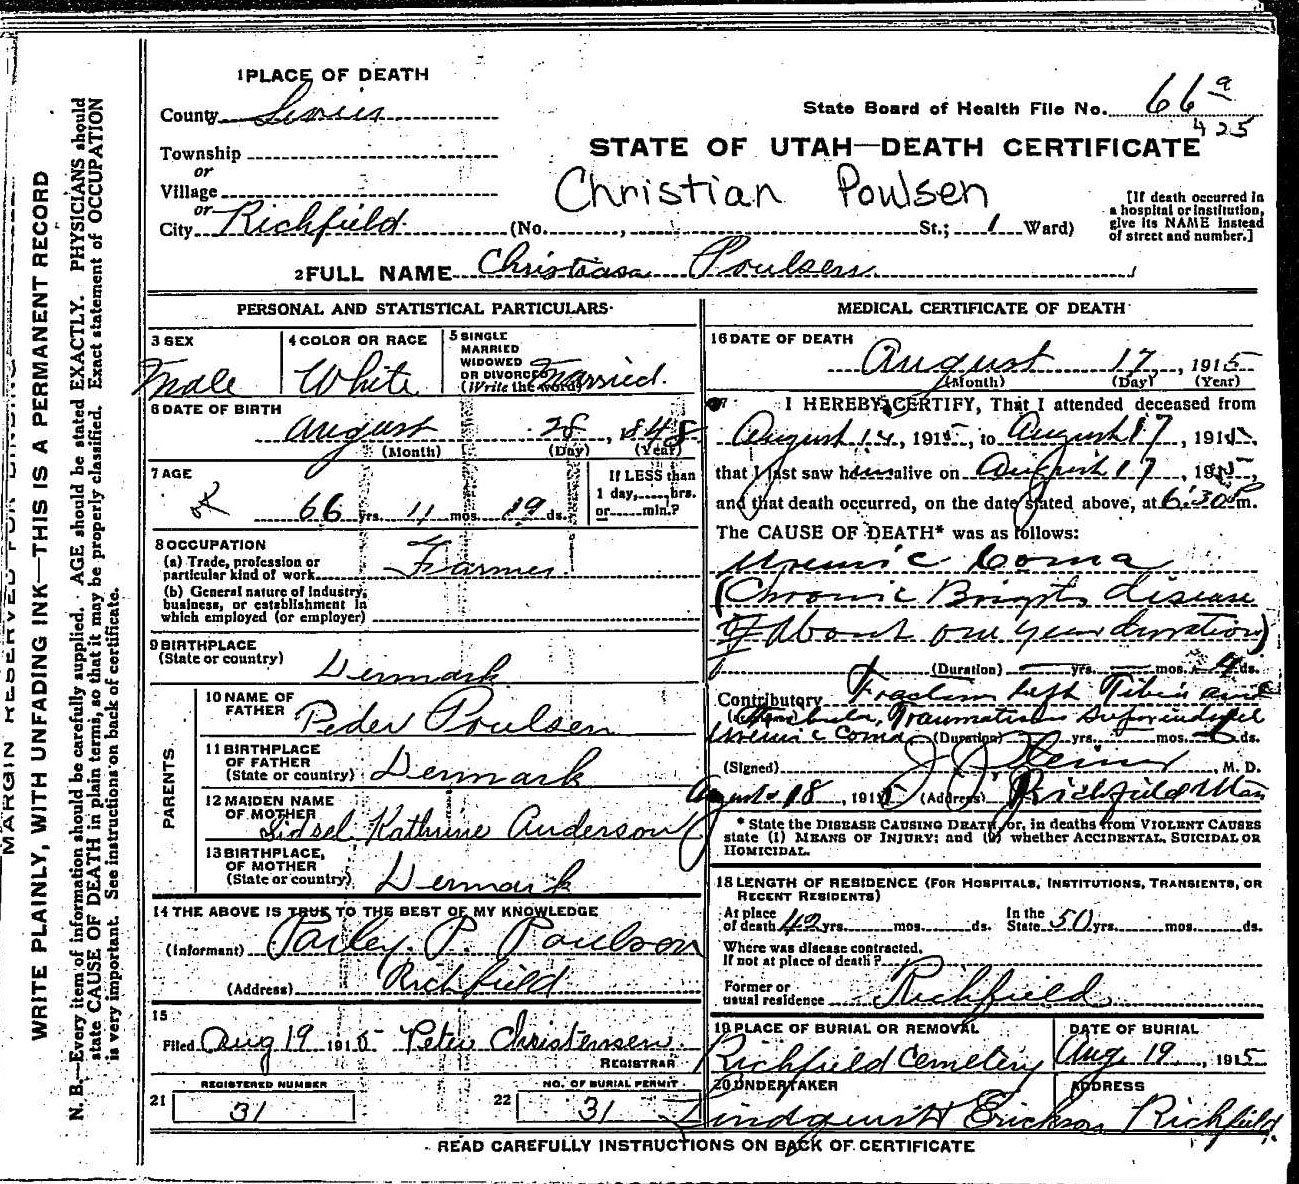 1 PLACE OF DEATH
County Sevier
State Board of Health File No. 66 a
425
Township
or
Village
or
City Richfield
STATE OF UTAH—DEATH CERTIFICATE
Christian Poulsen
(No. , St.; 1 Ward)
[If death occurred in
a hospital or institution,
give its NAME instead
of street and number.]
2 FULL NAME Poulsen
PERSONAL AND STATISTICAL PARTICULARS
3 SEX
Male
4 COLOR OR RACE
White
5 SINGLE
MARRIED
WIDOWED
OR DIVORCED
(Write the word)
Married.
6 DATE OF BIRTH
August 28, 1848
(Month) (Day) (Year)
7 AGE
66 yrs. 11 mos. 19 ds.
If LESS than
1 day,......hrs.
or......min.?
8 OCCUPATION
(a) Trade, profession or
particular kind of work Farmer
(b) General nature of Industry,
business, or establishment in
which employed (or employer)
9 BIRTHPLACE
(State or country)
Denmark
PARENTS
10 NAME OF
FATHER
Peder Poulsen
11 BIRTHPLACE
OF FATHER
(State or country) Denmark
12 MAIDEN NAME
OF MOTHER
Kathrine Anderson
13 BIRTHPLACE,
OF MOTHER
(State or country) Denmark
14 THE ABOVE IS TRUE TO THE BEST OF MY KNOWLEDGE
(Informant) Parley P. Poulson
(Address) Richfield
15
Filed Aug 19 1915 Peter Christensen
REGISTRAR
REGISTERED NUMBER
21 31
NO. OF BURIAL PERMIT
22 31
MEDICAL CERTIFICATE OF DEATH
16 DATE OF DEATH
August 17, 1915
(Month) (Day) (Year)
17 I HEREBY CERTIFY, That I attended deceased from
August 14, 1915, to August 17, 1915,
that I last saw him alive on August 17, 1915,
and that death occurred, on the date stated above, at 6:30 P m.
The CAUSE OF DEATH* was as follows:
Uremic Coma
(Chronic Brights disease
of about one year duration)
(Duration) yrs. mos. 4 ds.
Contributory Fracture left Tibia and
Traumatism
Uremic Coma (Duration) yrs. mos. ds.
(Signed) J. J. Steiner, M. D.
August 18, 1915 (Address) Richfield Utah
* State the DISEASE CAUSING DEATH, or, in deaths from VIOLENT CAUSES
state (1) MEANS OF INJURY; and (2) whether ACCIDENTAL, SUICIDAL OR
HOMICIDAL.
18 LENGTH OF RESIDENCE (FOR HOSPITALS, INSTITUTIONS, TRANSIENTS, OR
RECENT RESIDENTS)
At place
of death 42 yrs. mos. ds.
In the
State 50 yrs. mos. ds.
Where was disease contracted,
If not at place of death?
Former or
usual residence Richfield
19 PLACE OF BURIAL OR REMOVAL
Richfield Cemetery
DATE OF BURIAL
Aug. 19, 1915
20 UNDERTAKER
Lindquist Erickson
ADDRESS
Richfield.
READ CAREFULLY INSTRUCTIONS ON BACK OF CERTIFICATE
MARGIN RESERVED FOR BINDING
WRITE PLAINLY, WITH UNFADING INK—THIS IS A PERMANENT RECORD
N. B.—Every item of information should be carefully supplied. AGE should be stated EXACTLY. PHYSICIANS should
state CAUSE OF DEATH in plain terms, so that it may be properly classified. Exact statement of OCCUPATION
is very important. See instructions on back of certificate.